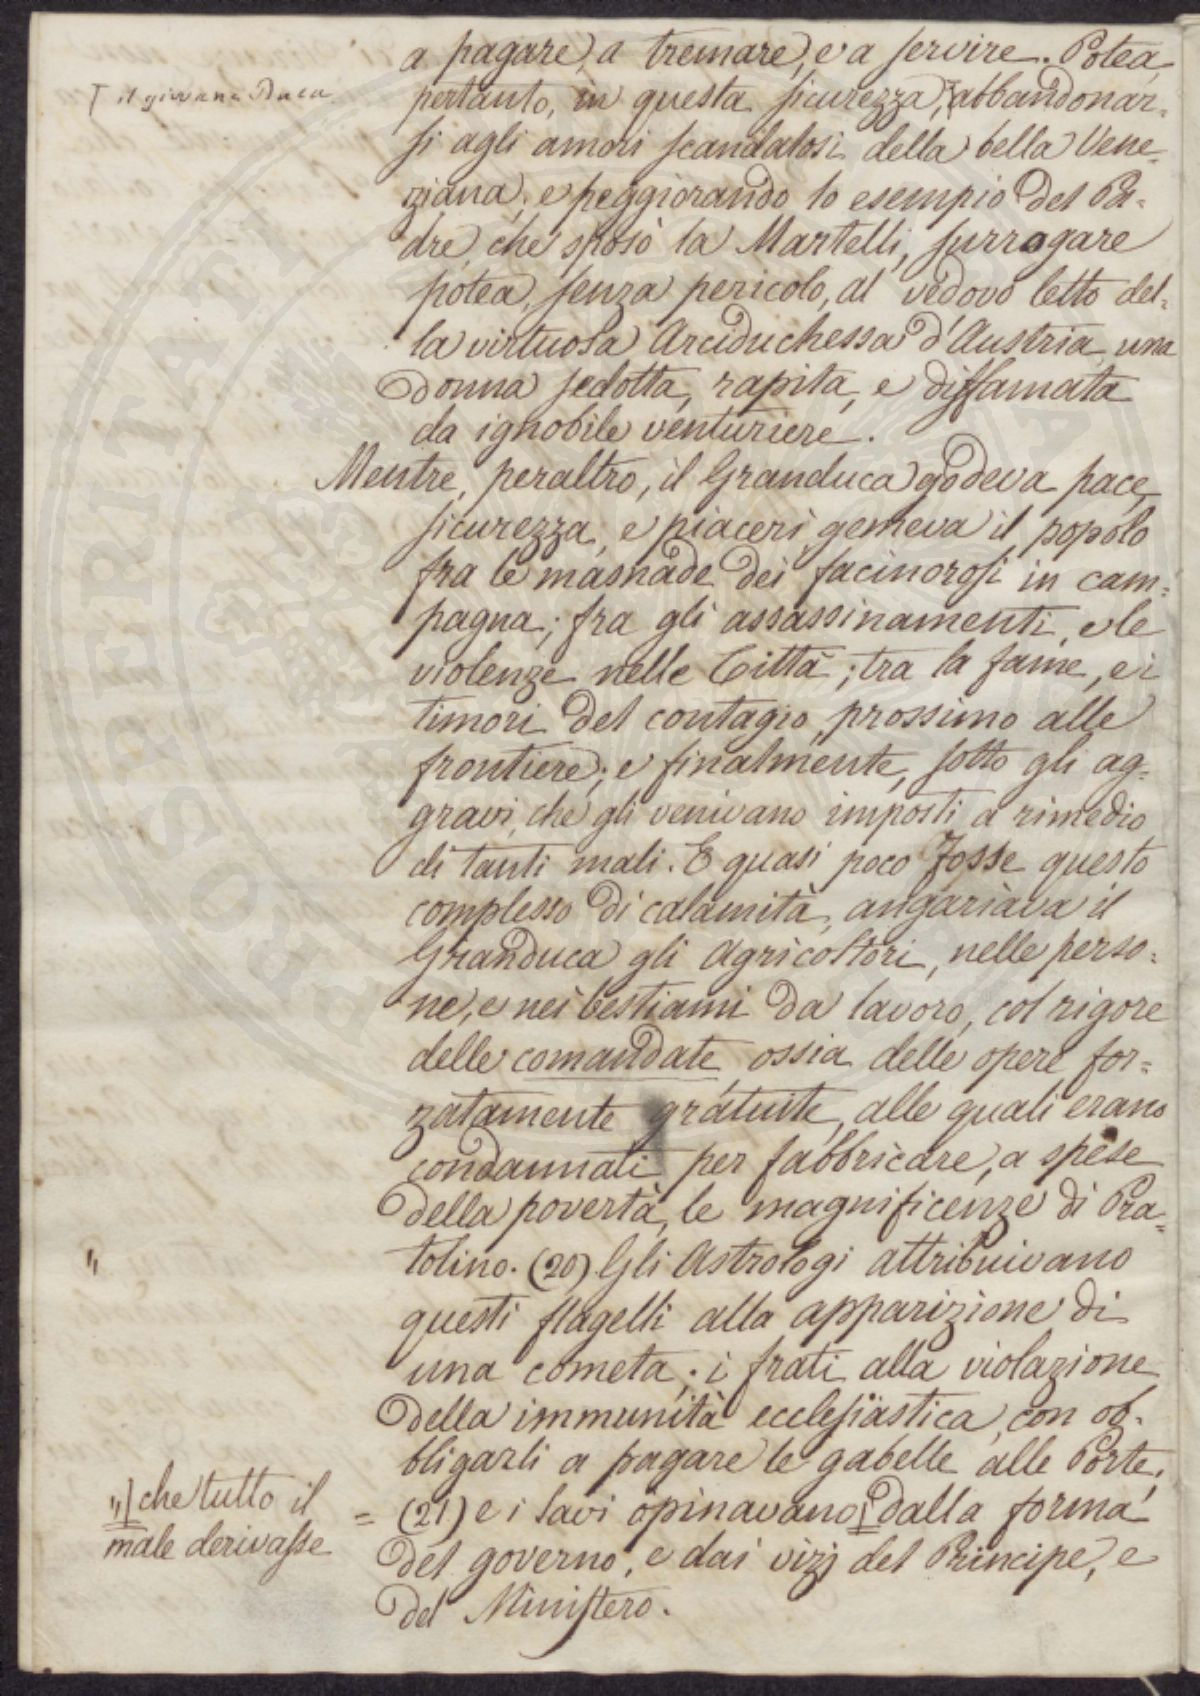 a pagare, a tremare, e a servire. Potea
⎡ il giovane Duca
pertanto, in questa sicurezza, ⎡abbandonar-
si agli amori scandalosi della bella Vene-
ziana; e peggiorando lo esempio del Pa-
dre, che sposò la Martelli, surrogare
potea, senza pericolo, al vedovo letto del-
la virtuosa Arciduchessa d'Austria, una
donna sedotta, rapita, e diffamata
da ignobile venturiere.
Mentre, peraltro, il Granduca godeva pace,
sicurezza, e piaceri, gemeva il popolo
fra le masnade dei facinorosi in cam-
pagna; fra gli assassinamenti, e le
violenze nelle Città; tra la fame, e i
timori del contagio, prossimo alle
frontiere; e finalmente, sotto gli ag-
gravi, che gli venivano imposti a rimedio
di tanti mali. E quasi poco fosse questo
complesso di calamità, angariava il
Granduca gli Agricoltori, nelle perso-
ne, e nei bestiami da lavoro, col rigore
delle comandate, ossia delle opere for-
zatamente gratuite, alle quali erano
condannati per fabbricare, a spese
della povertà, le magnificenze di Pra-
" tolino. (20) Gli Astrologi attribuivano
questi flagelli alla apparizione di
una cometa; i frati alla violazione
della immunità ecclesiastica, con ob-
bligarli a pagare le gabelle alle Porte;
= (21) e i Savi opinavano dalla forma
"| che tutto il
male derivasse
del governo, e dai vizj del Principe, e
del Ministero.
PROSPERITATI